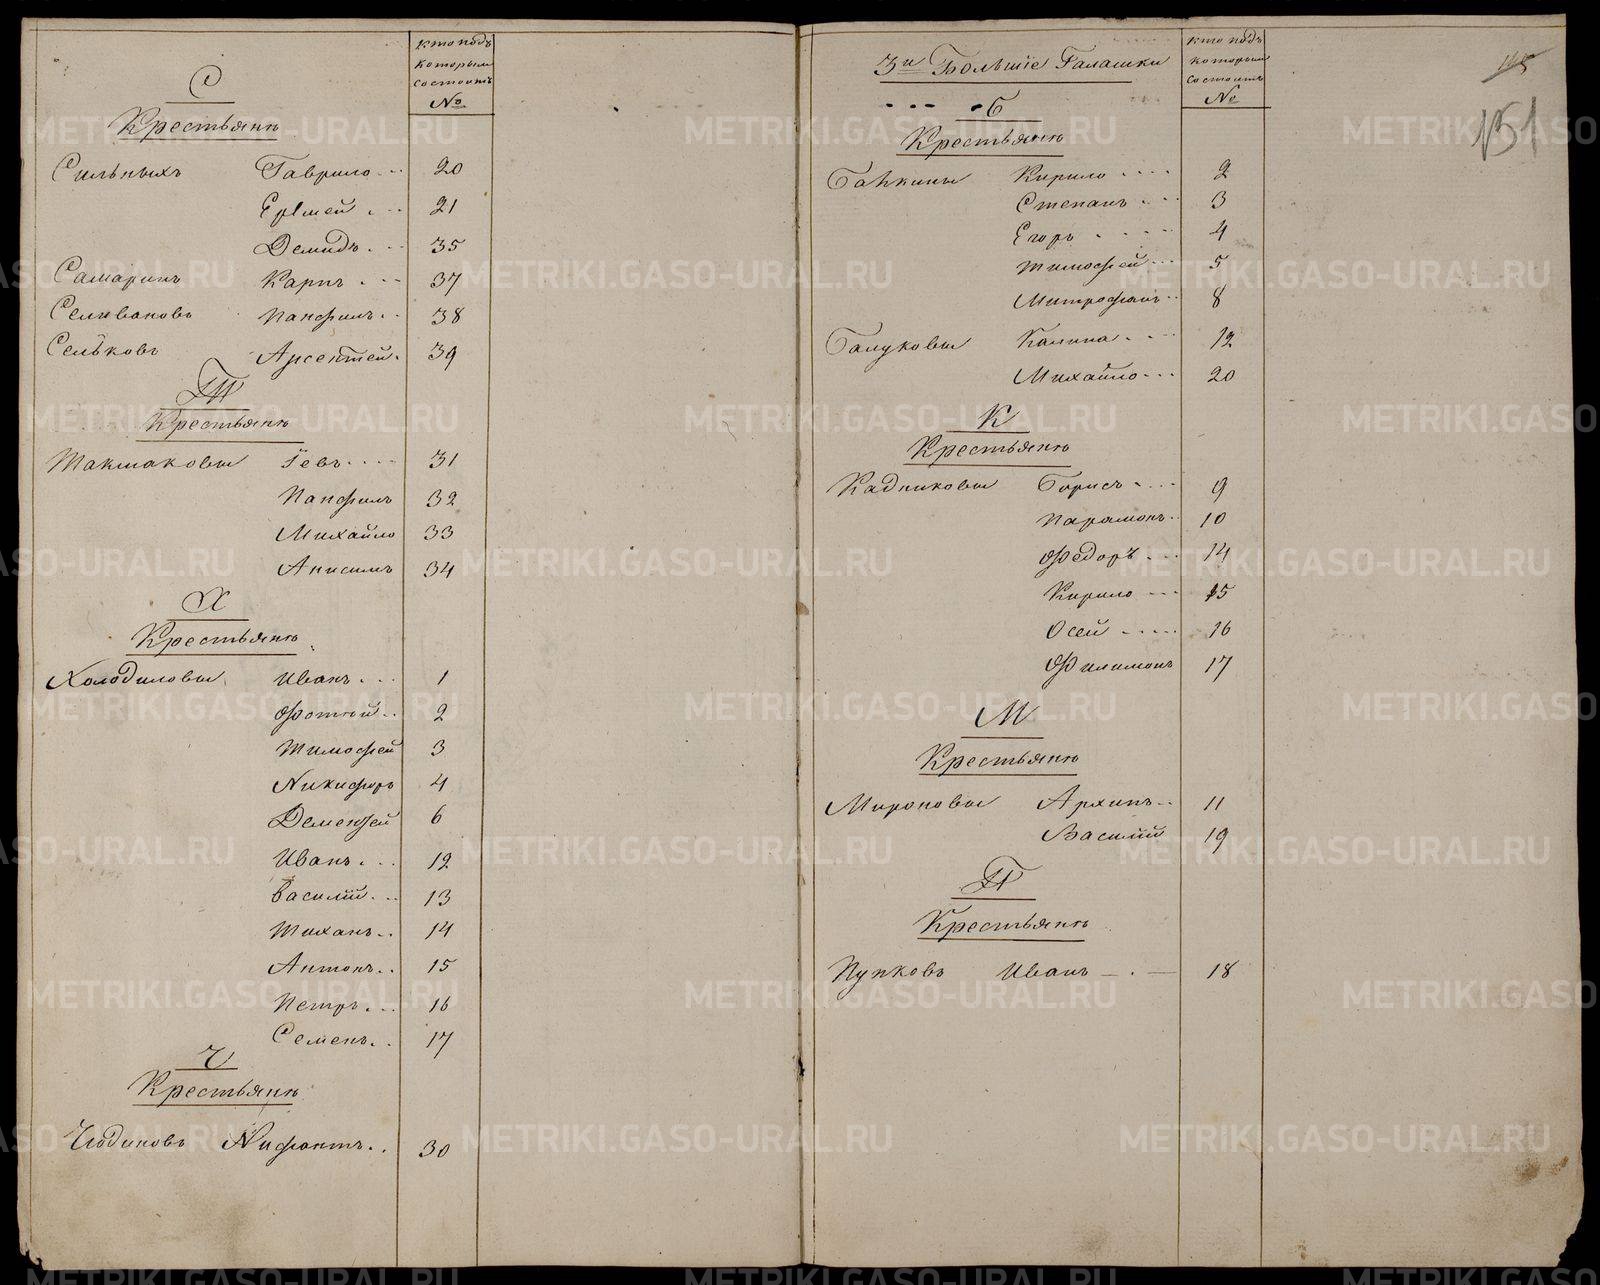 Кто подъ
которым
состоитъ
№
С
Крестьянѣ
Сильныхъ Гаврило 20
Ермей 21
Демидъ 35
Самаринъ Карпъ 37
Селивановъ Панфилъ 38
Сельковъ Арсентей 39
Т
Крестьянѣ
Токмаковы Iевъ 31
Панфилъ 32
Михайло 33
Анисимъ 34
Х
Крестьянѣ
Холодиловы Иванъ 1
Фотѣй 2
Тимофей 3
Никифоръ 4
Деменфей 6
Иванъ 12
Василiй 13
Тиханъ 14
Антонъ 15
Петръ 16
Семенъ 17
Ч
Крестьянѣ
Нифонтъ 30
145
151
3и Большiе Галашки
кто подъ
которым
состоитъ
№
Б
Крестьянѣ
Кирило 2
Степанъ 3
Егоръ 4
Тимофей 5
Митрофанъ 8
Балуковы Калина 12
Михайло 20
К
Крестьянѣ
Кадниковы Борисъ 9
Парамонъ 10
Федоръ 14
Кирило 15
Осей 16
Филимонъ 17
М
Крестьянѣ
Мироновы Архипъ 11
Василiй 19
П
Крестьянѣ
Пупковъ Иванъ 18
METRIKI.GASO-URAL.RU